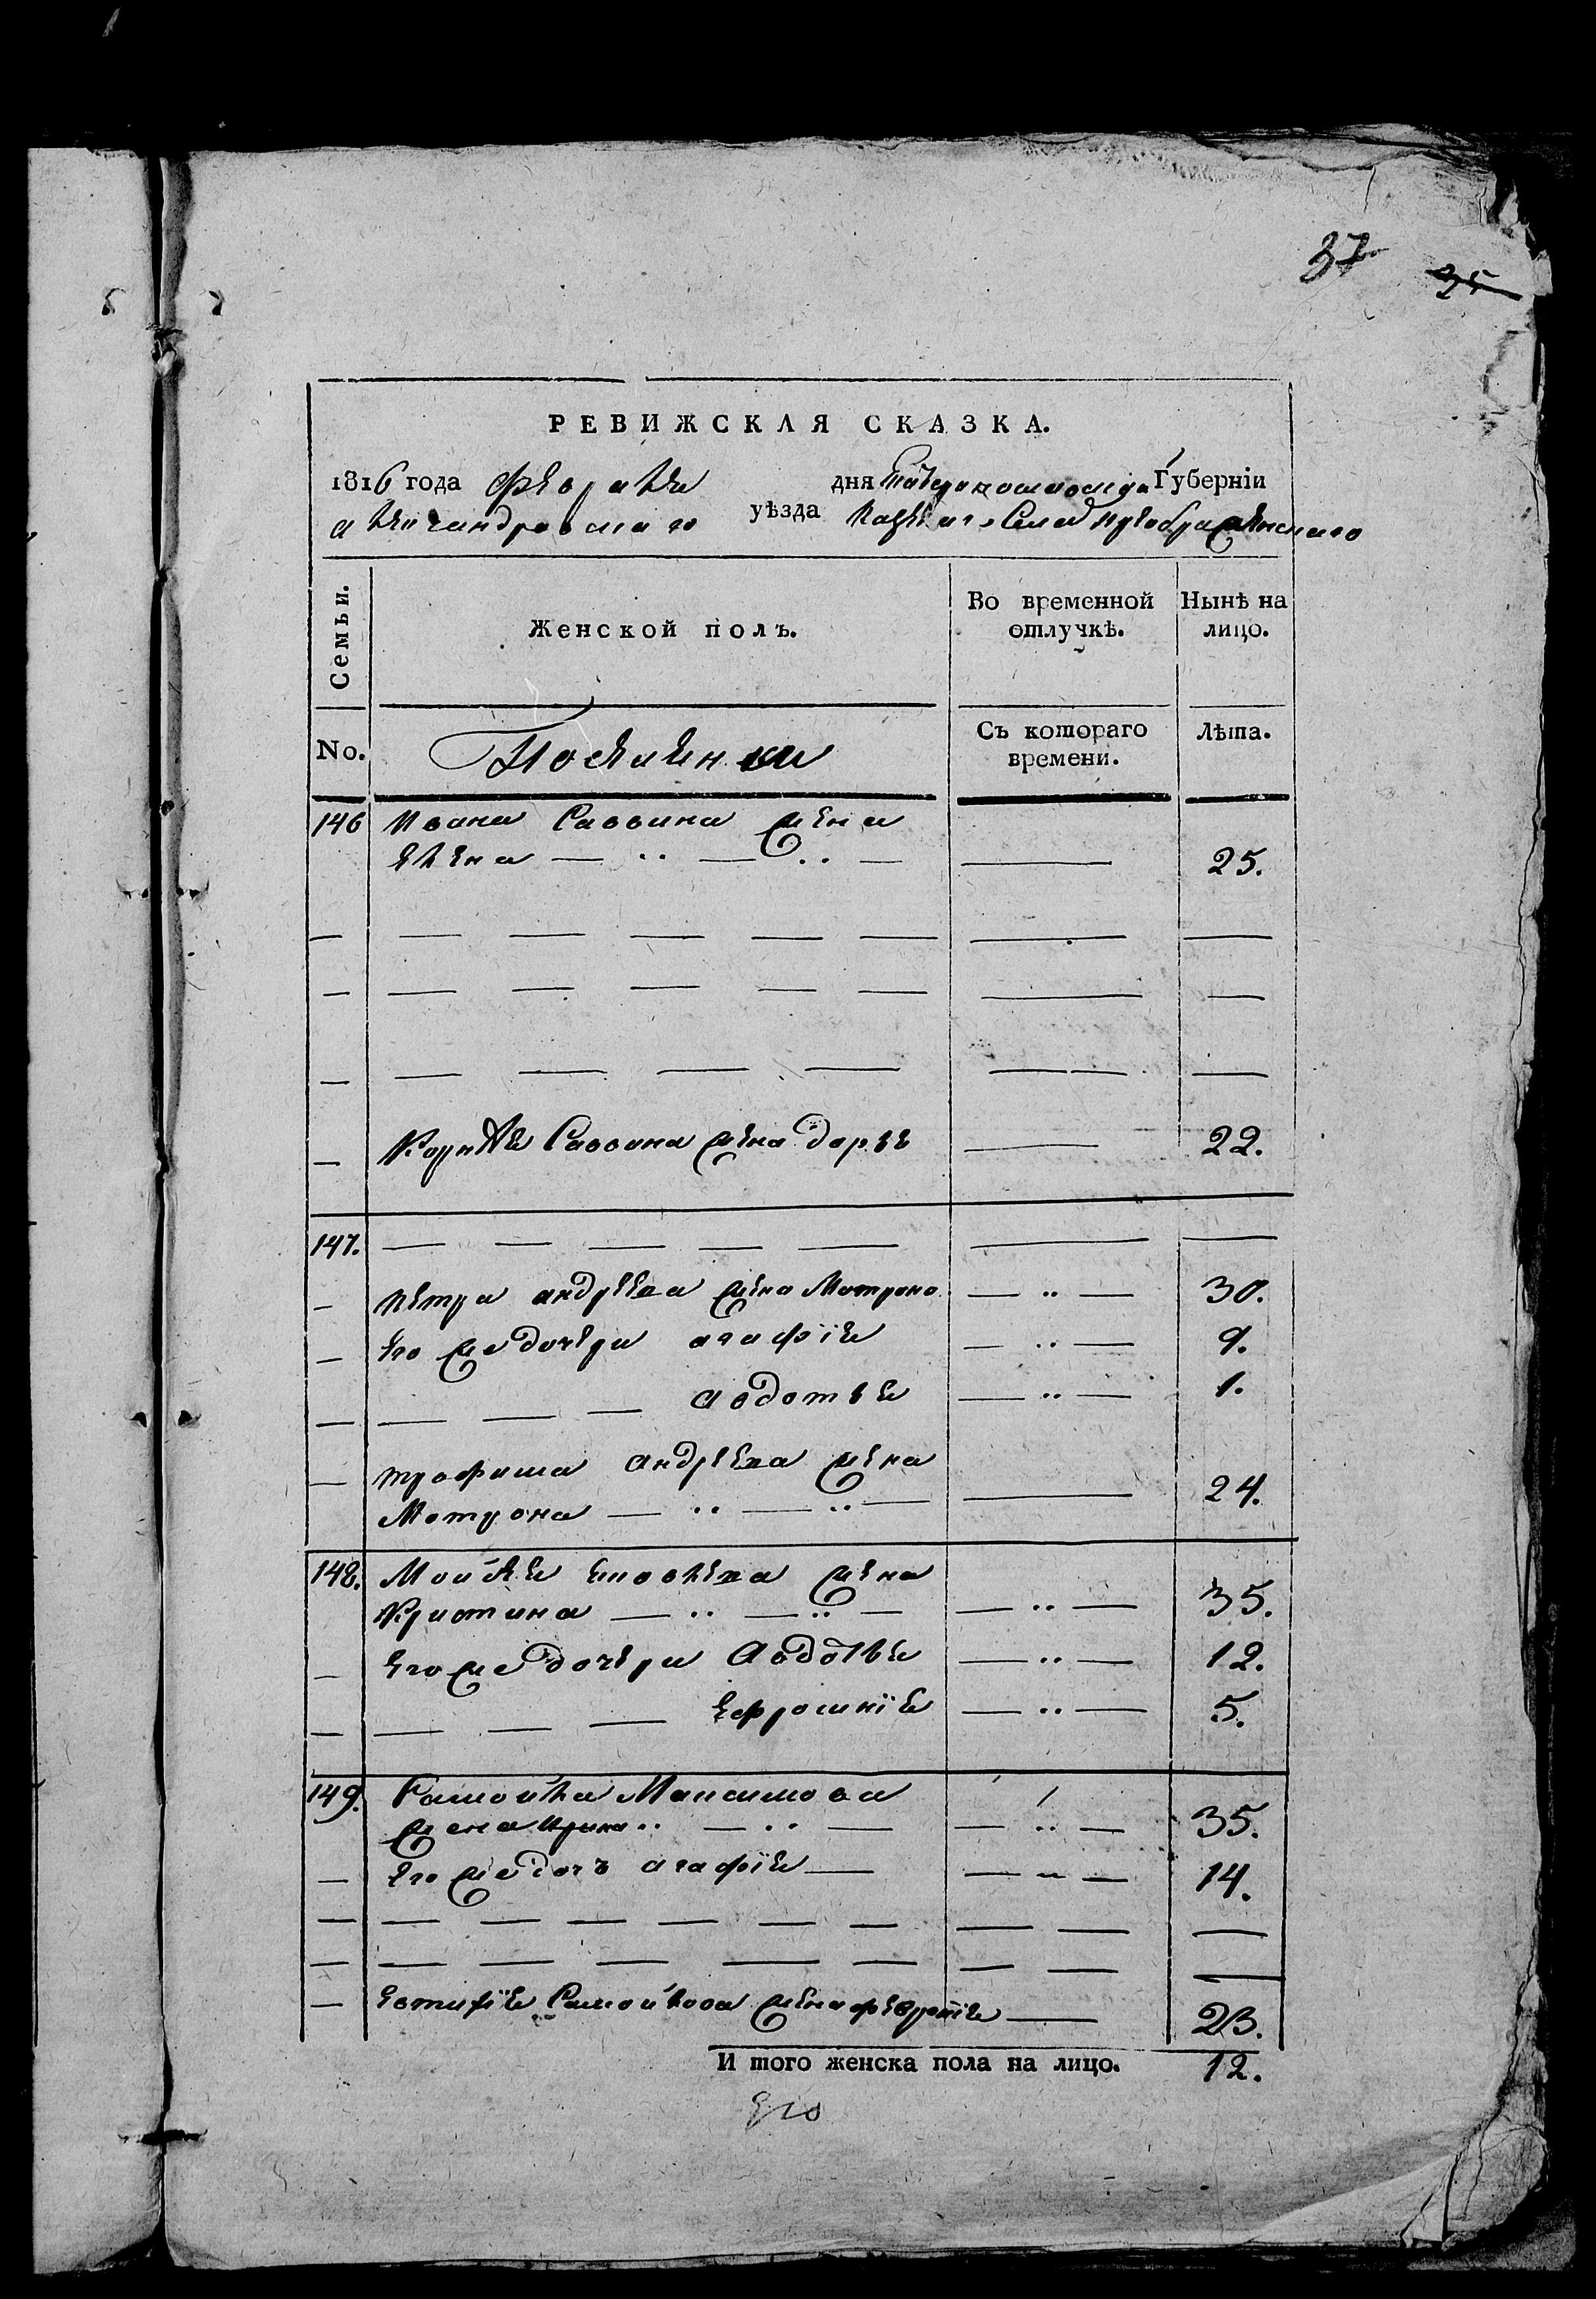 37
25
РЕВИЖСКАЯ СКАЗКА.
1816 года февраля дня Екатеринославской Губерніи
александровскаго уѣзда казеннаго Села преображенскаго
Семьи. Женской полъ. Во временной отлучкѣ. Нынѣ на лицо.
No. Съ котораго времени. Лѣта.
146 Ивана Саввина жена
елена — .. — .. — 25.
Корнѣя Саввина жена дарья 22.
147.
петра андрѣева жена Матрона — .. — 30.
его же дочери агафія — .. — 9.
авдотья — .. — 1.
трофима андрѣева жена
Матрона — .. — .. — 24.
148. Моисея яковлева жена
Кристина — .. — .. — — .. — 35.
его же дочери авдотья — .. — 12.
ефросинія — .. — 5.
149. Самойла Максимова
жена Ирина .. — .. — — .. — 35.
его же дочь агафія — 14.
евтифія Самойлова жена февронія 23.
И того женска пола на лицо. 12.
его